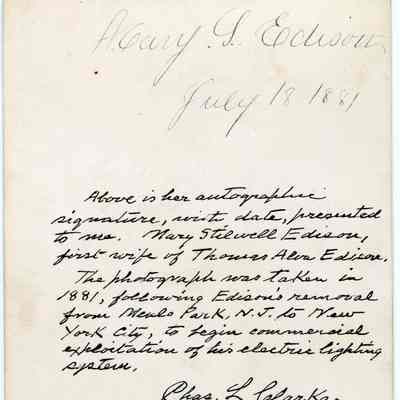 Mary S. Edison
July 18 1881
Above is her autographic
signature, with date, presented
to me. Mary Stilwell Edison,
first wife of Thomas Alva Edison.
The photograph was taken in
1881, following Edison's removal
from Menlo Park, N.J. to New
York City, to begin commercial
exploitation of his electric lighting
system.
Chas. L. Clarke.